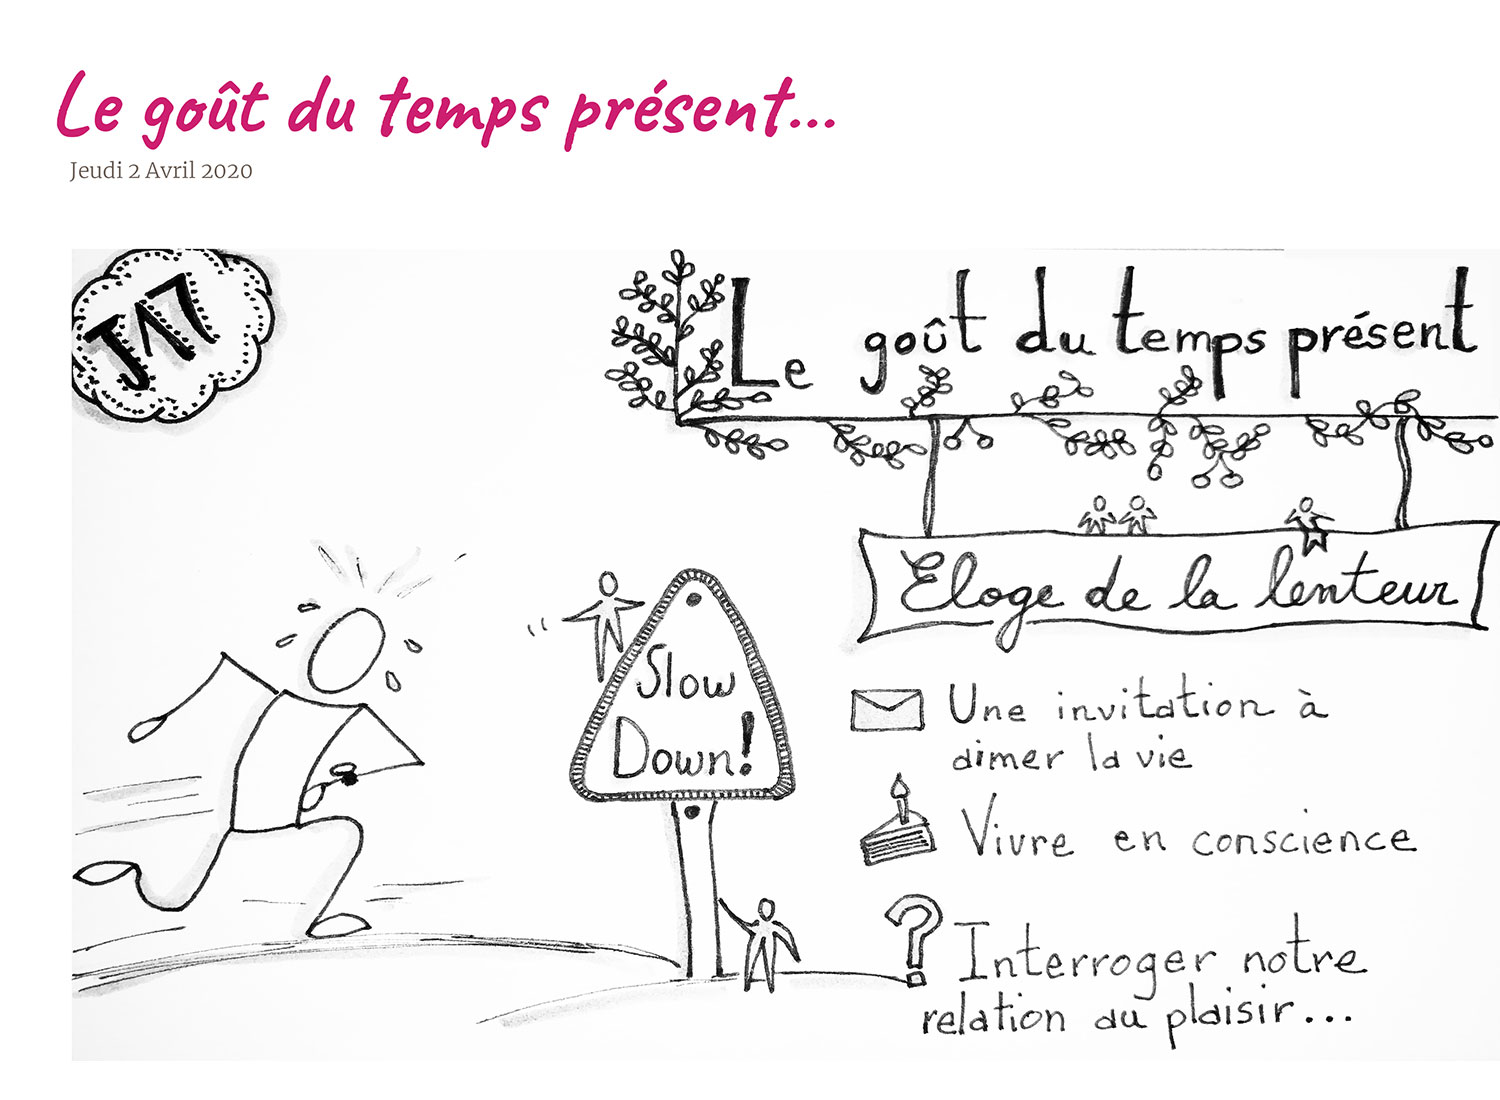 Le goût du temps présent...
Jeudi 2 Avril 2020
J17
Le goût du temps présent
Eloge de la lenteur
Slow
Down!
Une invitation à
aimer la vie
Vivre en conscience
Interroger notre
relation au plaisir...